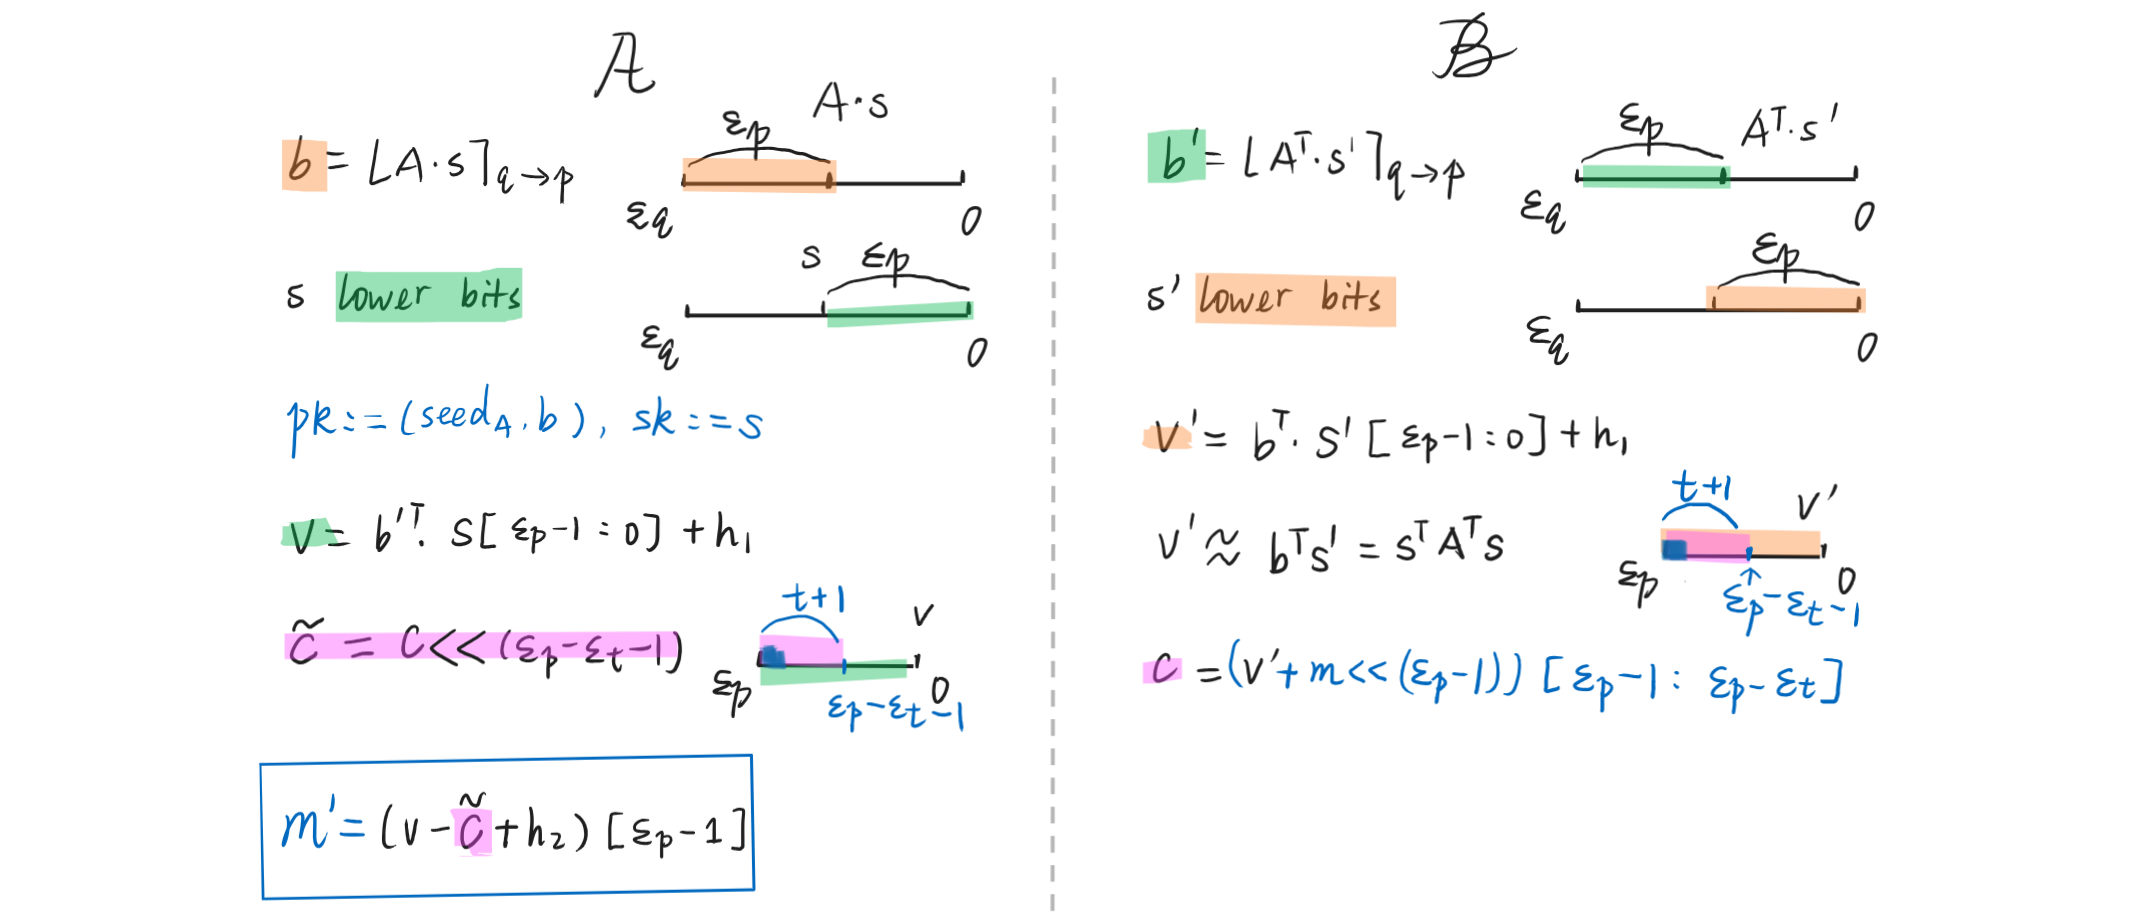 A
b = ⌊A·s⌉q→p
εp
A·s
εq
0
s lower bits
s
εp
εq
0
pk := (seedA, b), sk := s
v = b'ᵀ· s[εp-1:0] + h₁
c̃ = c<<(εp-εt-1)
t+1
v
εp
0
εp-εt-1
m' = (v - c̃ + h₂)[εp-1]
B
b' = ⌊Aᵀ·s'⌉q→p
εp
Aᵀ·s'
εq
0
s' lower bits
εp
εq
0
v' = bᵀ· s'[εp-1:0] + h₁
v' ≈ bᵀs' = sᵀAᵀs
t+1
v'
εp
0
εp-εt-1
c = (v' + m<<(εp-1))[εp-1: εp-εt]